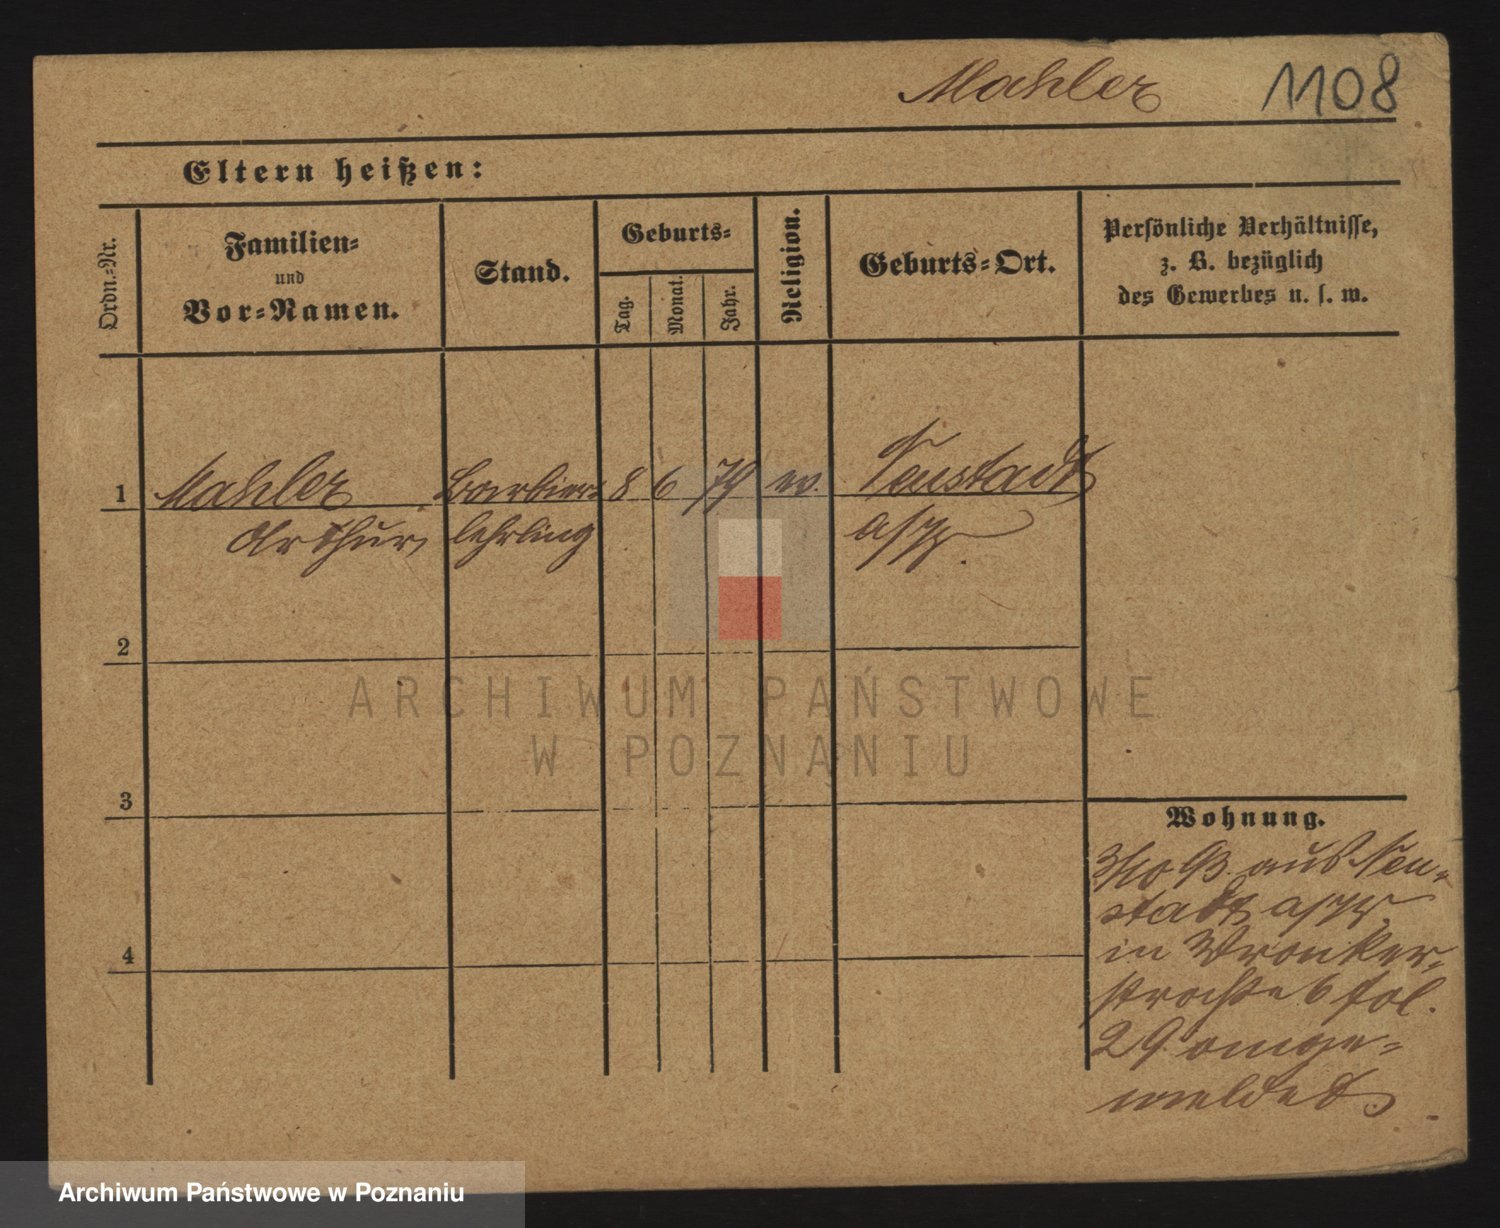 Mahler 1108
Eltern heißen:
Ordn.=Nr.
Familien=
und
Vor=Namen.
Stand.
Geburts=
Tag.
Monat.
Jahr.
Religion.
Geburts=Ort.
Persönliche Verhältnisse,
z. B. bezüglich
des Gewerbes u. s. w.
1 Mahler Barbier= 8 6 79 Neustadt
Arthur lehrling
2
3
4
Wohnung.
aus Neu=
stadt
in Wronker=
straße 6 fol.
29 ange=
meldet
ARCHIWUM PAŃSTWOWE
W POZNANIU
Archiwum Państwowe w Poznaniu